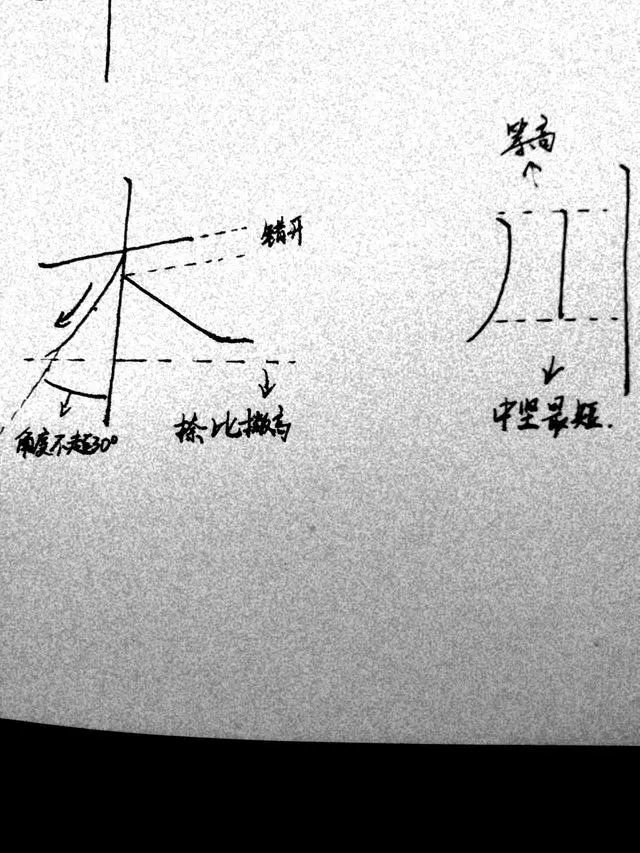 等高
木
错开
川
角度不超30°
捺比撇高
中坚最短.